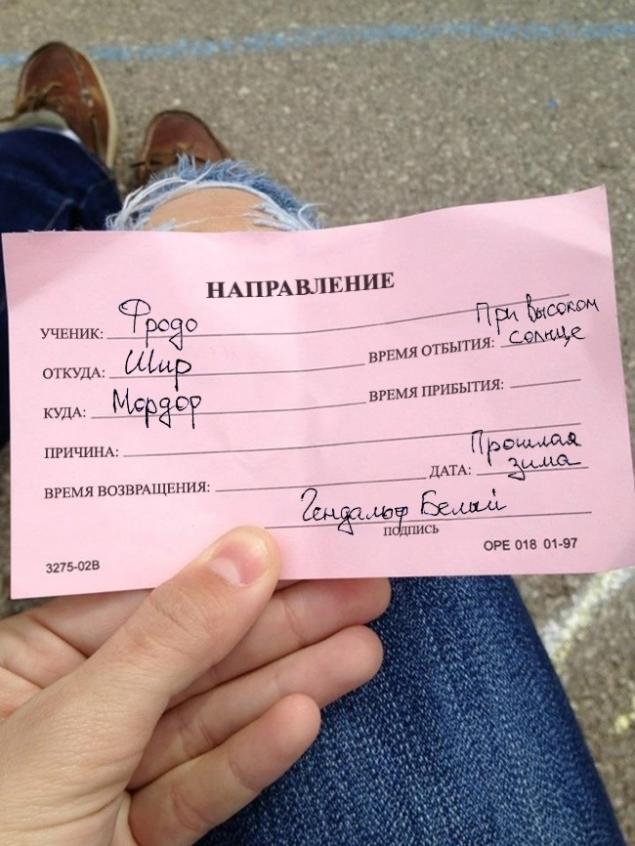 НАПРАВЛЕНИЕ
УЧЕНИК: Фродо
ОТКУДА: Шир ВРЕМЯ ОТБЫТИЯ: При высоком солнце
КУДА: Мордор ВРЕМЯ ПРИБЫТИЯ:
ПРИЧИНА:
ВРЕМЯ ВОЗВРАЩЕНИЯ: ДАТА: Прошлая зима
Гендальф Белый
ПОДПИСЬ
3275-02B OPE 018 01-97